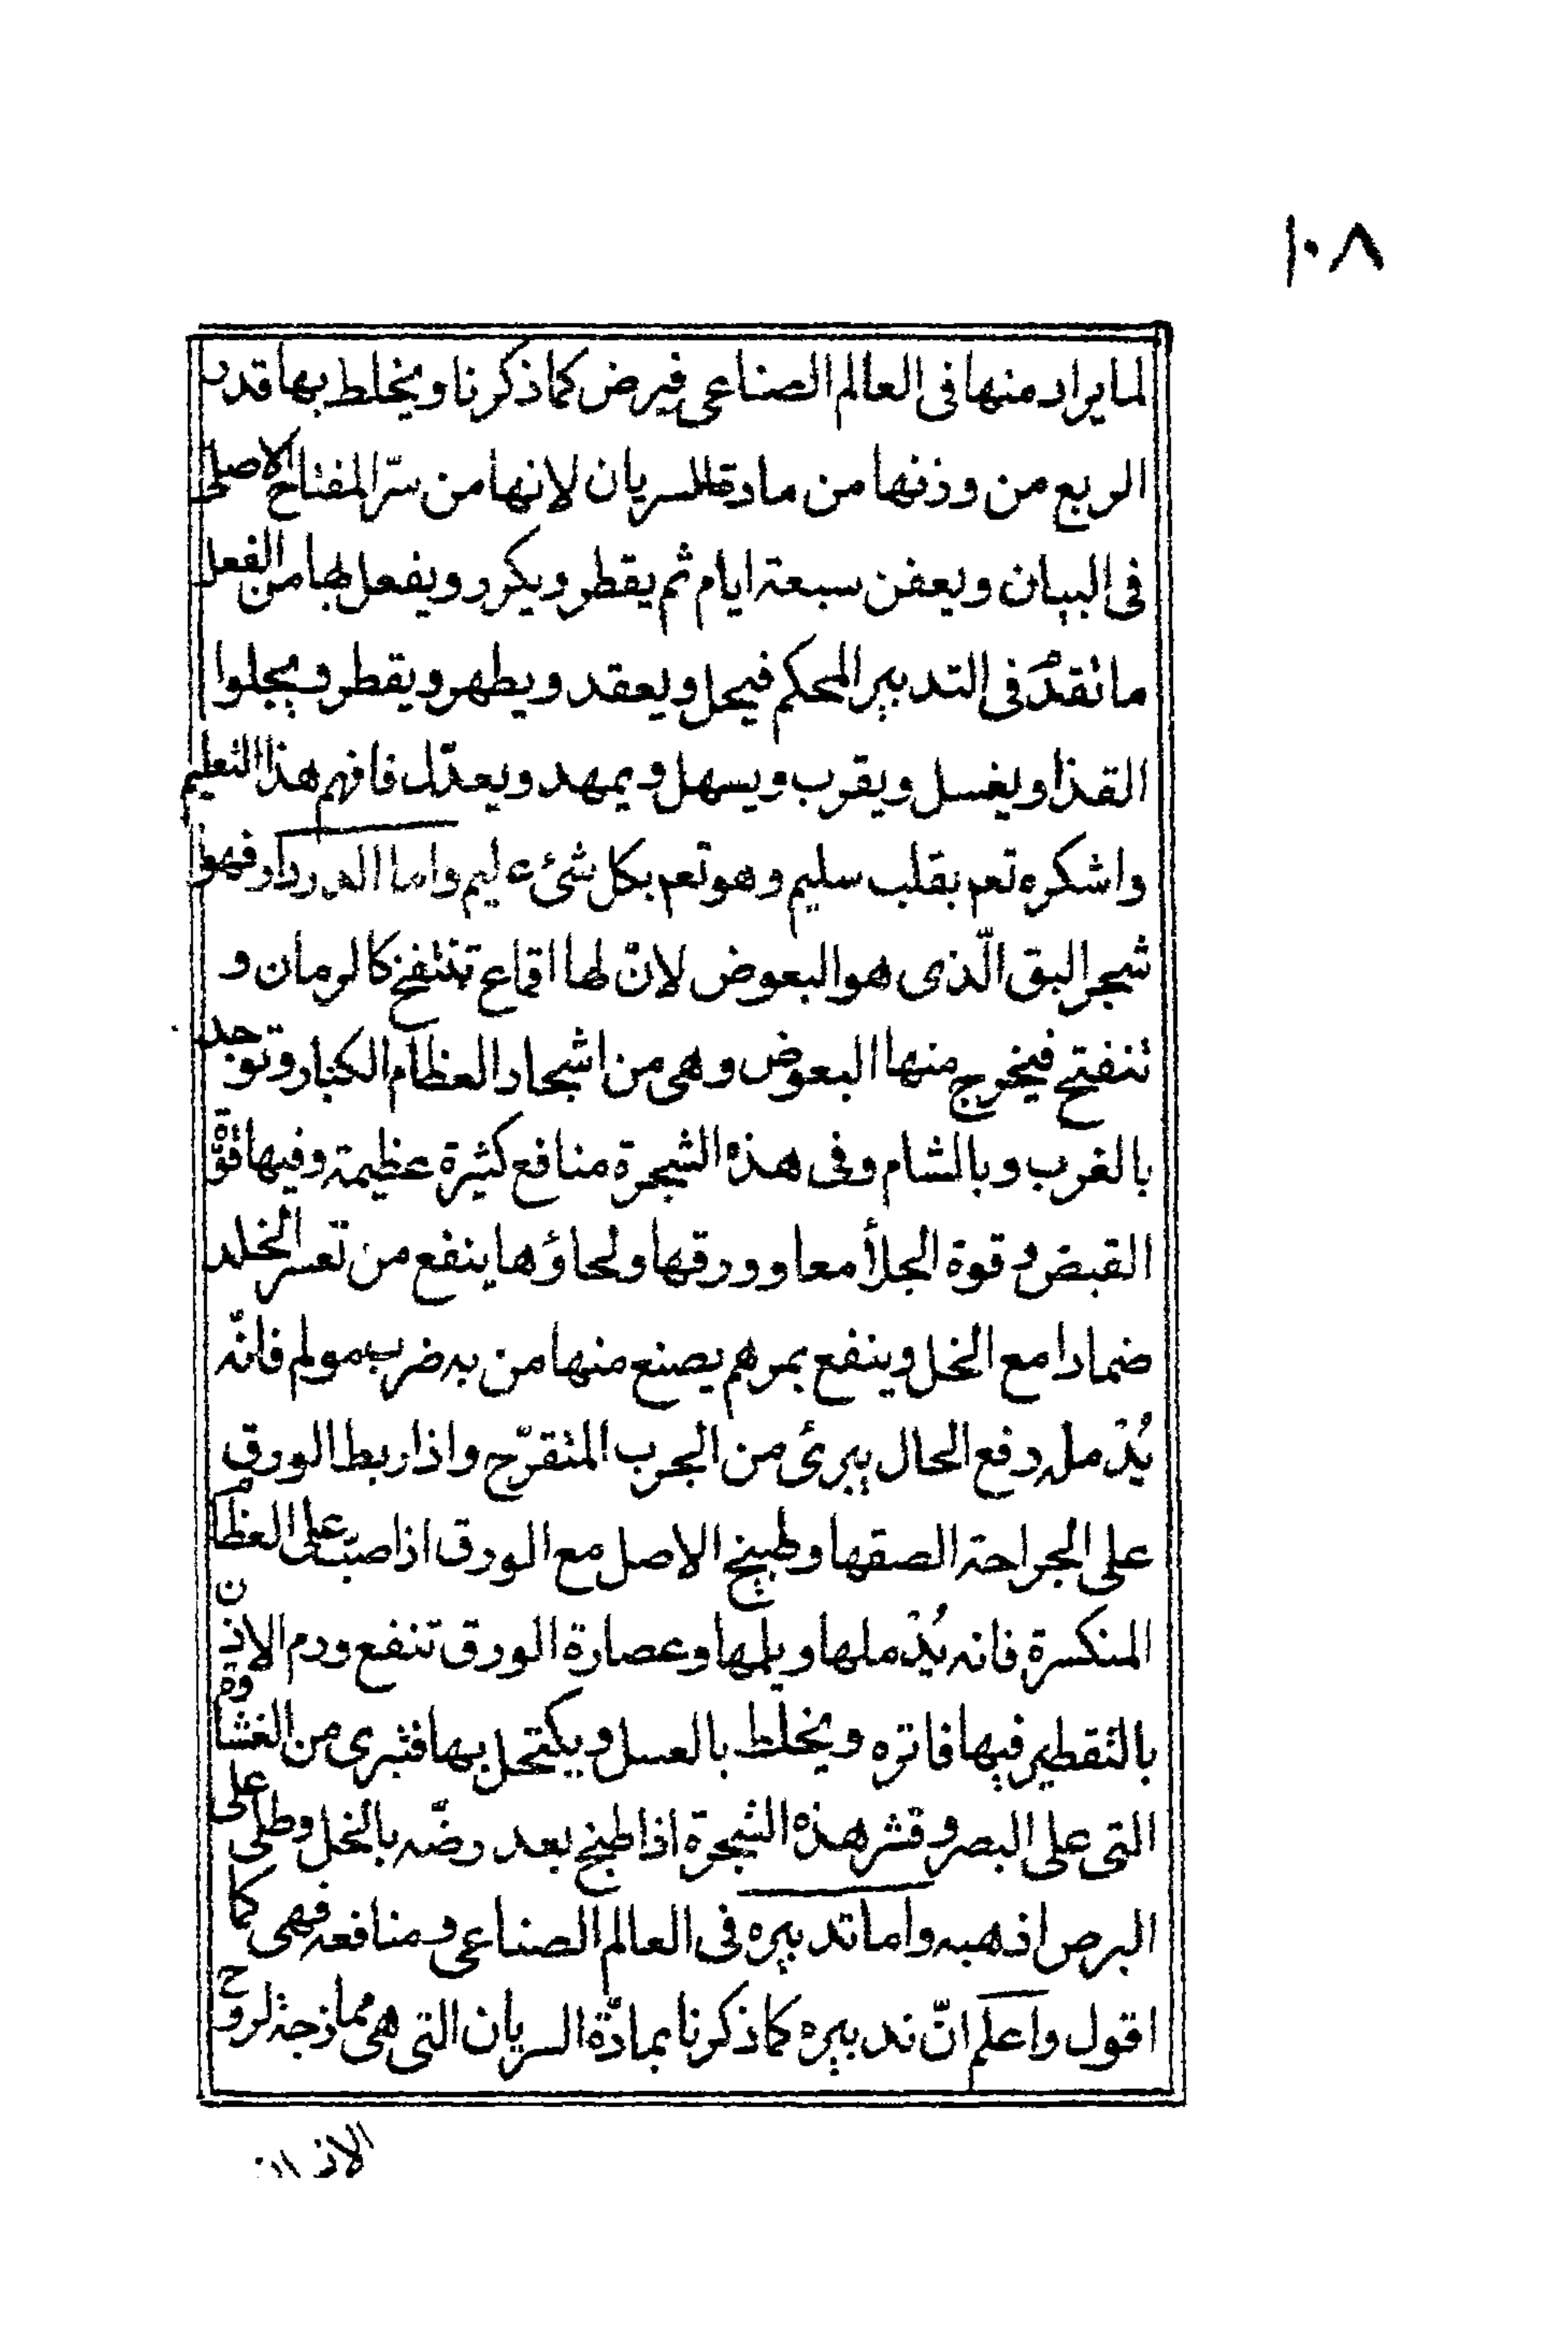 ١٠٨
لما يراد منها فى العالم الصناعى فيرض كما ذكرنا ويخلط بها قدر
الربع من وزنها من مادة السريان لانها من سرّ المفتاح الاصلى
فى البيان ويعفن سبعة ايام ثم يقطر ويكرر ويفعل لها من الفعل
ما تقدّم فى التدبير المحكم فيحل ويعقد ويطهر ويقطر ويجلوا
القذا ويغسل ويقرب ويسهل ويمهد ويعدّل فافهم هذا التعليم
واشكره تعم بقلب سليم وهو تعم بكل شئ عليم واما الدردار فهو
شجر البق الّذى هو البعوض لانّ لها اقماع تنتفخ كالرمان و
تنفتح فيخرج منها البعوض وهى من اشجار العظام الكبار وتوجد
بالغرب وبالشام وفى هذه الشجرة منافع كثيرة عظيمة وفيها قوّة
القبض وقوة الجلأ معا وورقها ولحاؤها ينفع من تعسر الخلد
ضمادا مع الخل وينفع بمرهم يصنع منها من به ضرب مولم فانّه
يُدْمله دفع الحال يبرئ من الجرب المتقرّح واذا ربط الورق
على الجراحة الصقها وطبيخ الاصل مع الورق اذا صبّ على العظام
المنكسرة فانه يُدْملها ويلمها وعصارة الورق تنفع ورم الاذن
بالتقطير فيها فاتره ويخلط بالعسل ويكتحل بها فتبرى من الغشاوة
التى على البصر وقشر هذه الشجرة اذا طبخ بعد رضّه بالخل وطلى على
البرص اذهبه واما تدبيره فى العالم الصناعى ومنافعه فهى كما
اقول واعلم انّ تدبيره كما ذكرنا بمادّة السريان التى هى ممازجة لروح